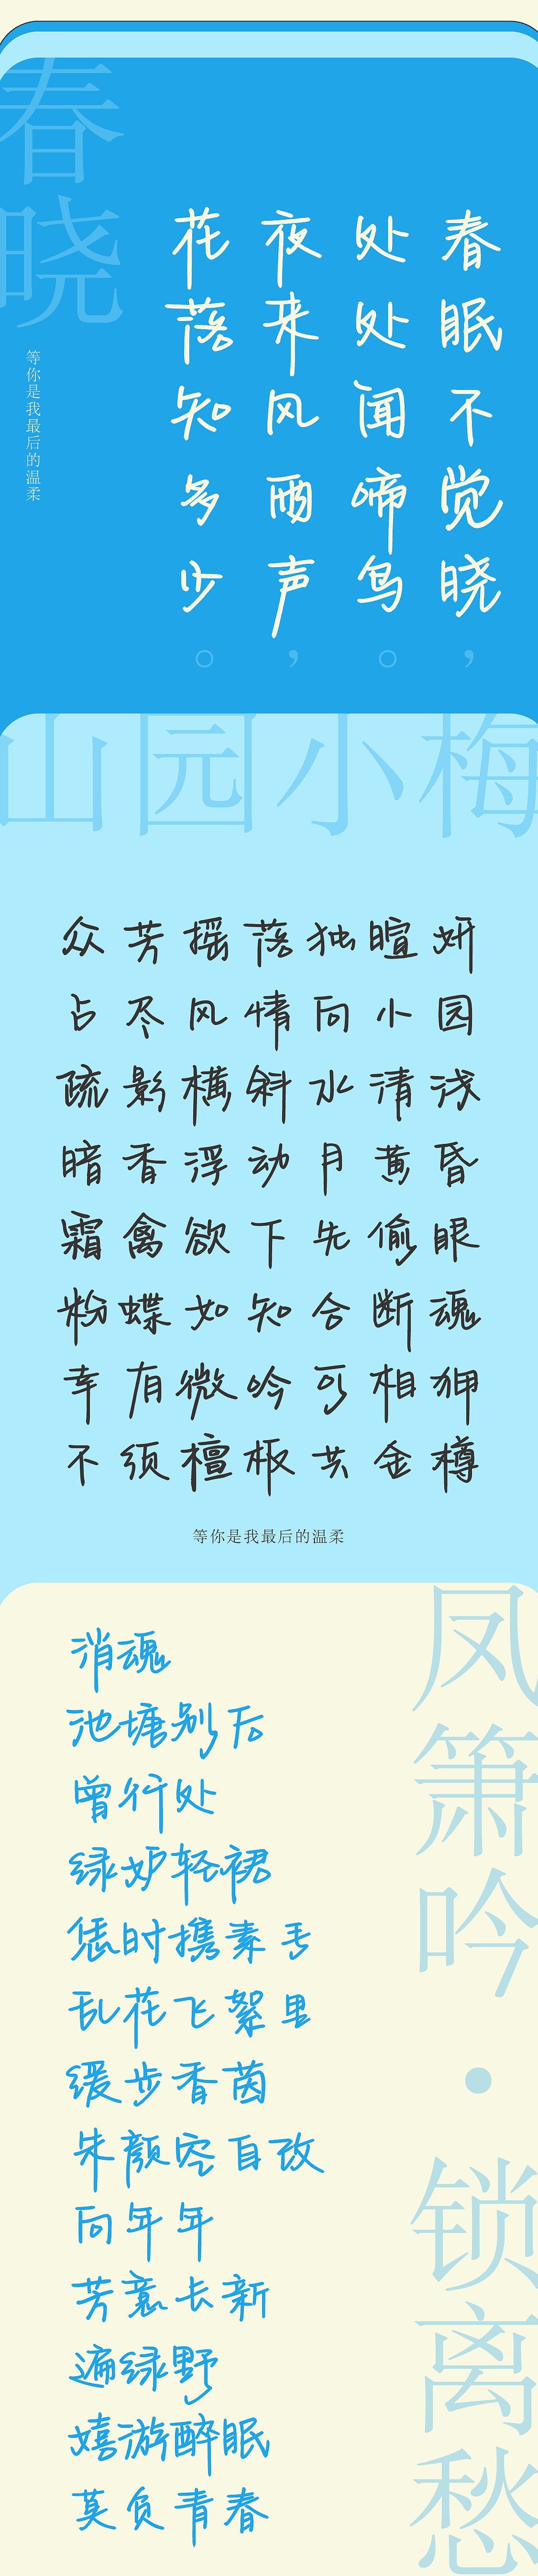 春晓
春眠不觉晓
处处闻啼鸟
夜来风雨声
花落知多少
，。，。
等你是我最后的温柔
山园小梅
众芳摇落独暄妍
占尽风情向小园
疏影横斜水清浅
暗香浮动月黄昏
霜禽欲下先偷眼
粉蝶如知合断魂
幸有微吟可相狎
不须檀板共金樽
等你是我最后的温柔
凤箫吟·锁离愁
消魂
池塘别后
曾行处
绿妒轻裙
恁时携素手
乱花飞絮里
缓步香茵
朱颜空自改
向年年
芳意长新
遍绿野
嬉游醉眠
莫负青春